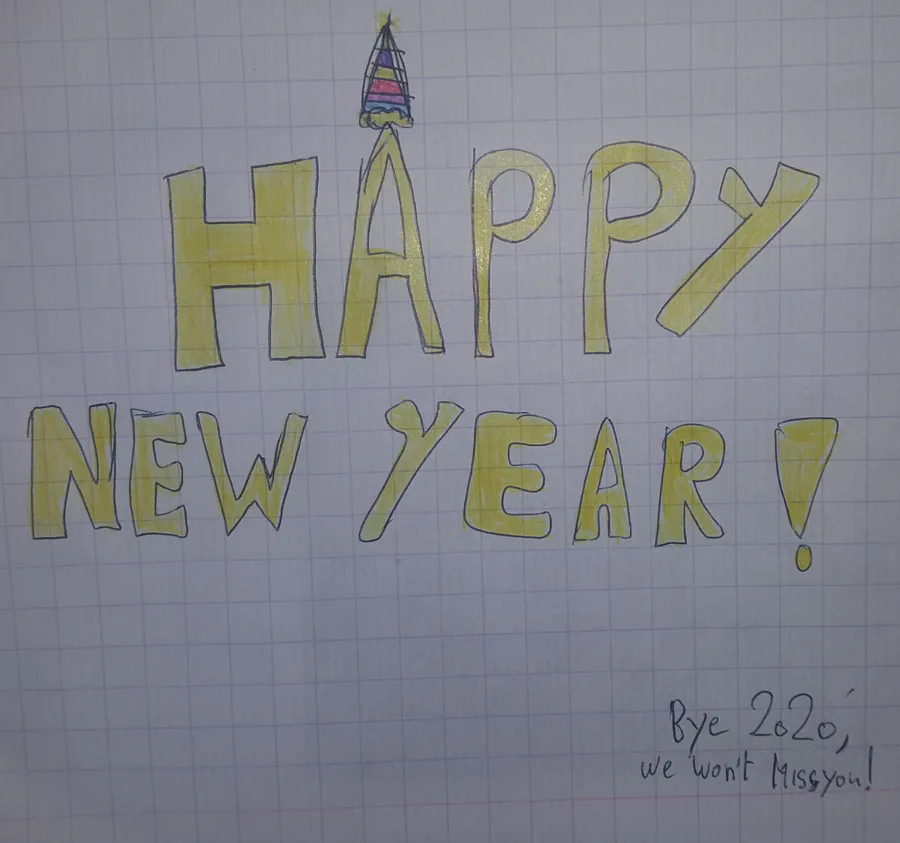 HAPPY
NEW YEAR!
Bye 2020,
we won't Miss you!